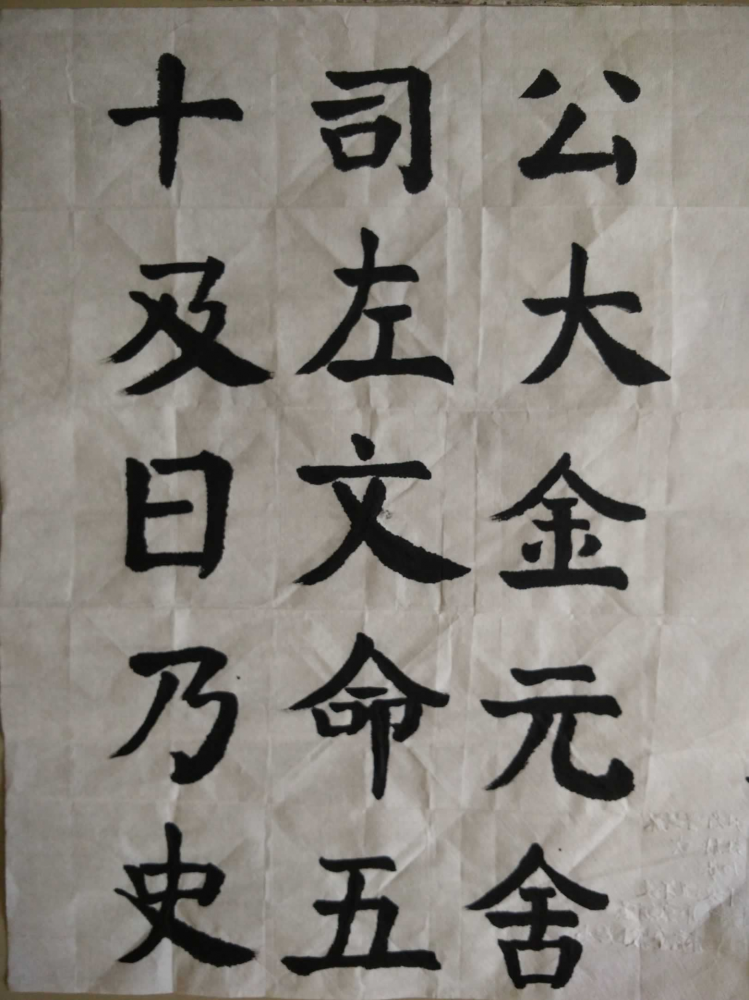 公大金元舍
司左文命五
十及曰乃史